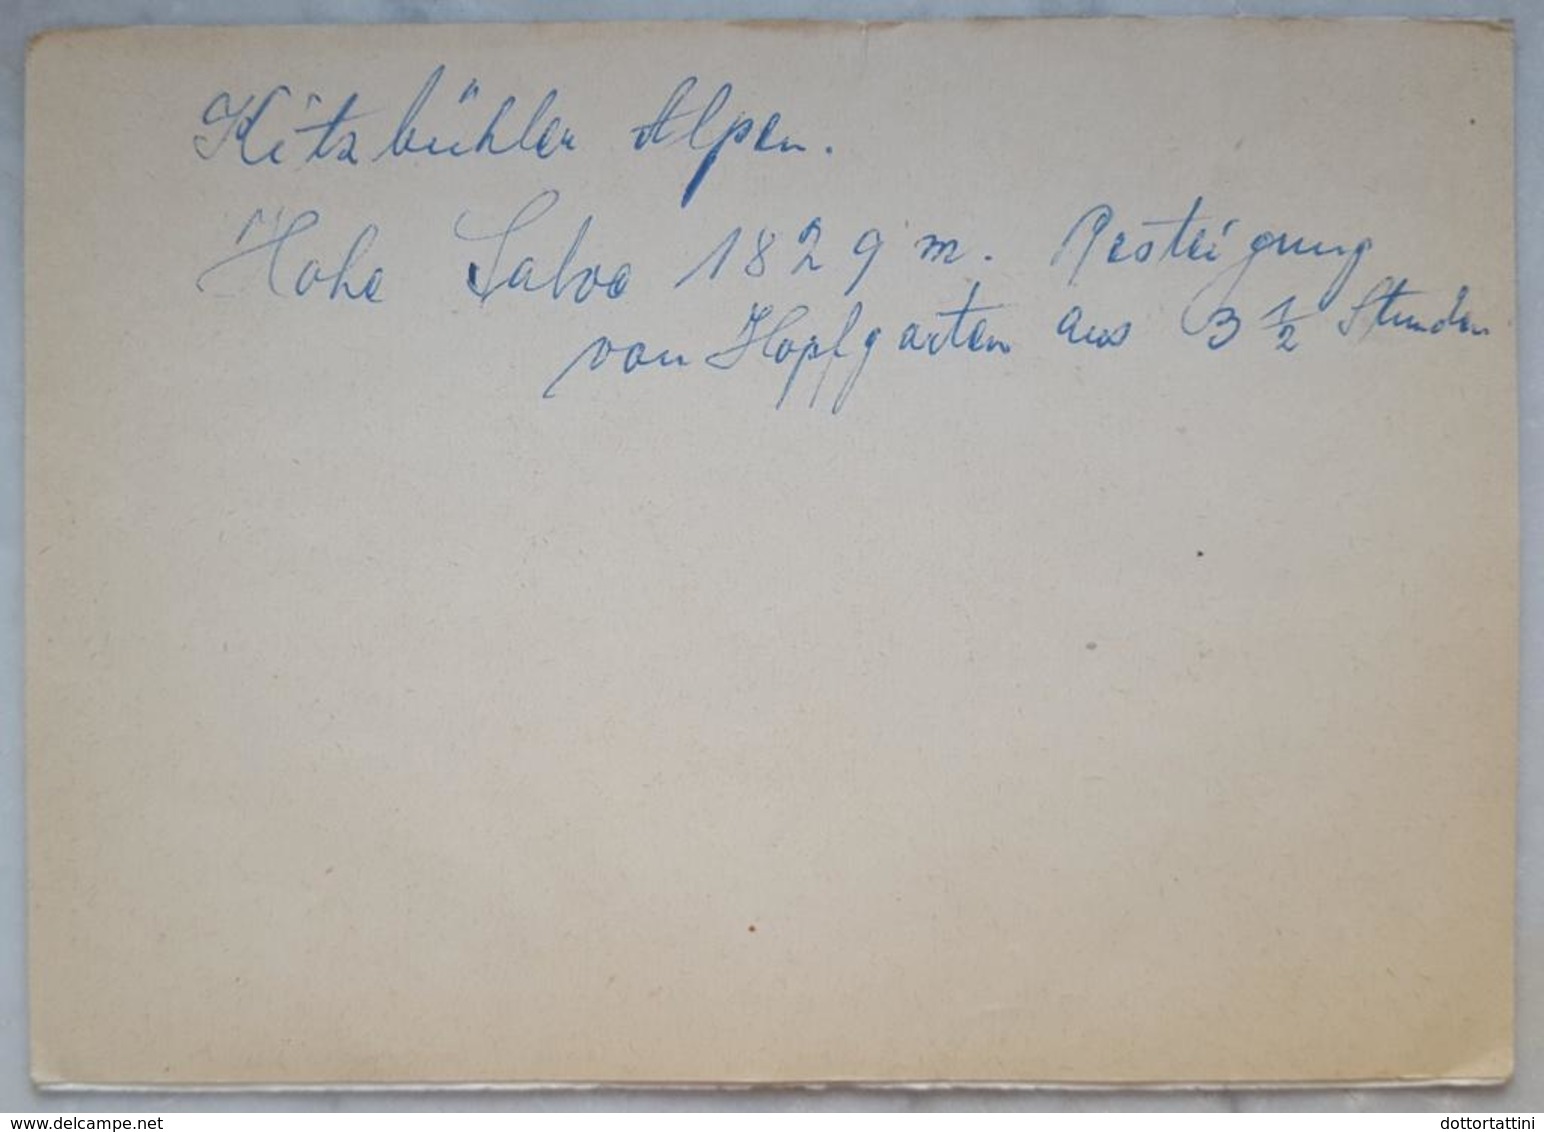 Kitzbühler Alpen.
Hohe Salve 1829 m. Besteigung
von Hopfgarten aus 3 1/2 Stunden
www.delcampe.net
dottortattini